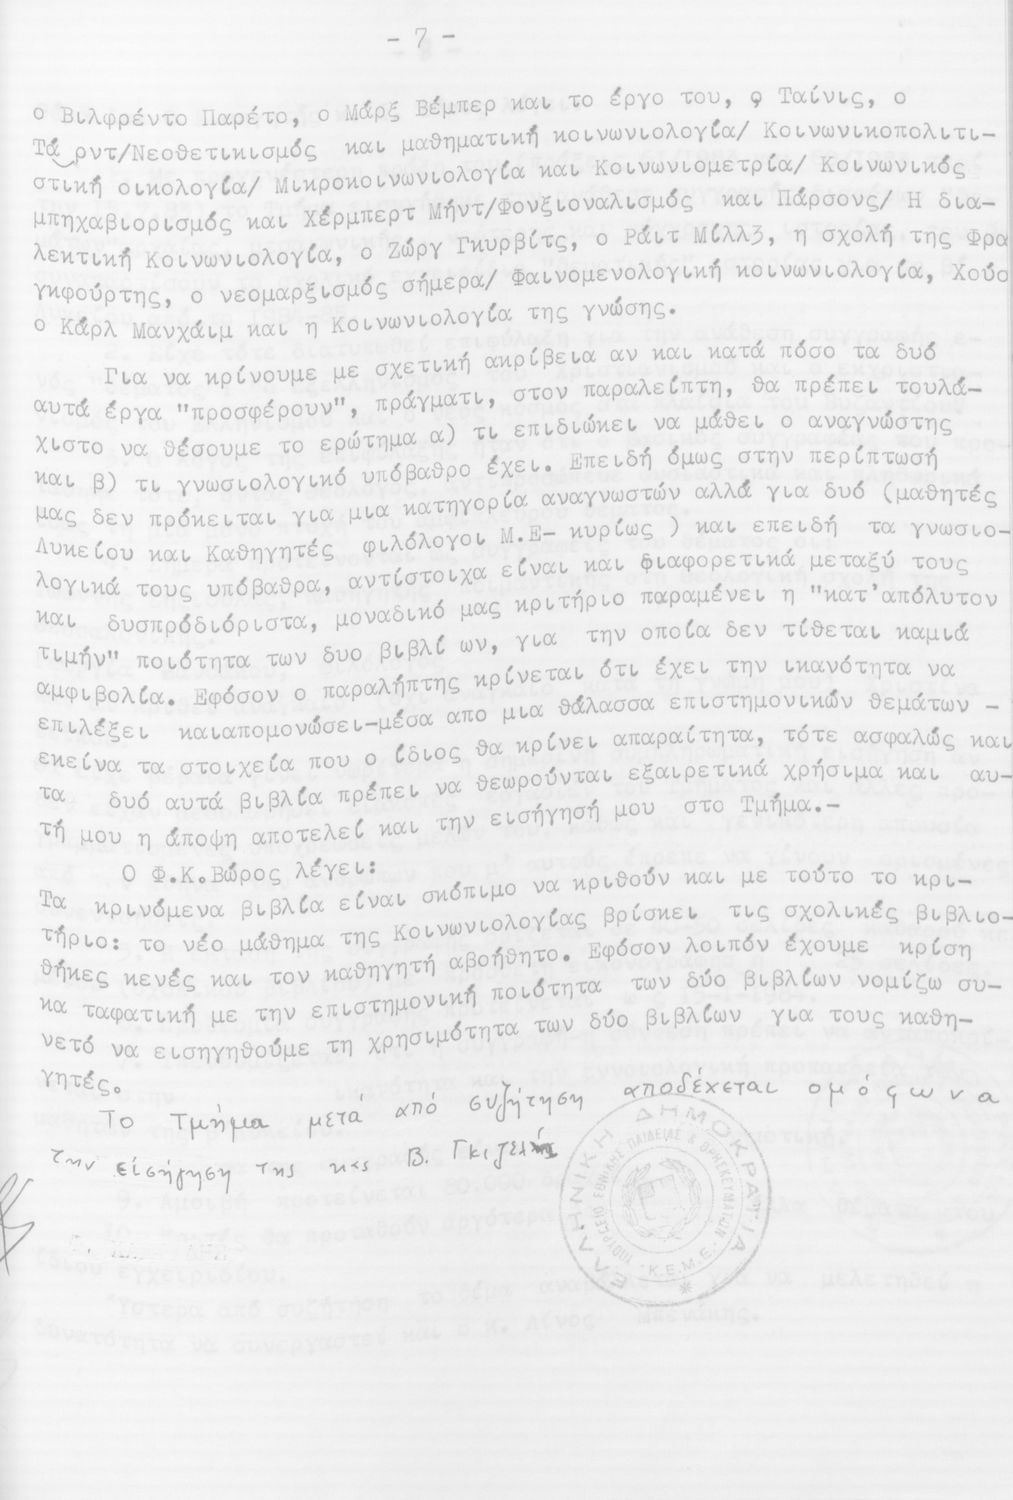 - 7 -
ο Βιλφρέντο Παρέτο, ο Μάρξ Βέμπερ και το έργο του, ο Ταίνις, ο
Τάρντ/Νεοθετικισμός και μαθηματική κοινωνιολογία/ Κοινωνικοπολιτι-
στική οικολογία/ Μικροκοινωνιολογία και Κοινωνιομετρία/ Κοινωνικός
μπηχαβιορισμός και Χέρμπερτ Μήντ/Φονξιοναλισμός και Πάρσονς/ Η δια-
λεκτική Κοινωνιολογία, ο Ζώργ Γκυρβίτς, ο Ράιτ Μίλλζ, η σχολή της Φρα
γκφούρτης, ο νεομαρξισμός σήμερα/ Φαινομενολογική κοινωνιολογία, Χούο
ο Κάρλ Μανχάιμ και η Κοινωνιολογία της γνώσης.
Για να κρίνουμε με σχετική ακρίβεια αν και κατά πόσο τα δυό
αυτά έργα "προσφέρουν", πράγματι, στον παραλείπτη, θα πρέπει τουλά-
χιστο να θέσουμε το ερώτημα α) τι επιδιώκει να μάθει ο αναγνώστης
και β) τι γνωσιολογικό υπόβαθρο έχει. Επειδή όμως στην περίπτωσή
μας δεν πρόκειται για μια κατηγορία αναγνωστών αλλά για δυό (μαθητές
Λυκείου και Καθηγητές φιλόλογοι Μ.Ε- κυρίως ) και επειδή τα γνωσιο-
λογικά τους υπόβαθρα, αντίστοιχα είναι και διαφορετικά μεταξύ τους
και δυσπρόδιόριστα, μοναδικό μας κριτήριο παραμένει η "κατ'απόλυτον
τιμήν" ποιότητα των δυο βιβλί ων, για την οποία δεν τίθεται καμιά
αμφιβολία. Εφόσον ο παραλήπτης κρίνεται ότι έχει την ικανότητα να
επιλέξει καιαπομονώσει-μέσα απο μια θάλασσα επιστημονικών θεμάτων -
εκείνα τα στοιχεία που ο ίδιος θα κρίνει απαραίτητα, τότε ασφαλώς και
τα δυό αυτά βιβλία πρέπει να θεωρούνται εξαιρετικά χρήσιμα και αυ-
τή μου η άποψη αποτελεί και την εισήγησή μου στο Τμήμα.-
Ο Φ.Κ.Βώρος λέγει:
Τα κρινόμενα βιβλία είναι σκόπιμο να κριθούν και με τούτο το κρι-
τήριο: το νέο μάθημα της Κοινωνιολογίας βρίσκει τις σχολικές βιβλιο-
θήκες κενές και τον καθηγητή αβοήθητο. Εφόσον λοιπόν έχουμε κρίση
κα ταφατική με την επιστημονική ποιότητα των δύο βιβλίων νομίζω συ-
νετό να εισηγηθούμε τη χρησιμότητα των δύο βιβλίων για τους καθη-
γητές.
Το Τμήμα μετά από συζήτηση αποδέχεται ομόφωνα
την εισήγηση της κας Β. Γκιζελή
ΕΛΛΗΝΙΚΗ ΔΗΜΟΚΡΑΤΙΑ
ΥΠΟΥΡΓΕΙΟ ΕΘΝΙΚΗΣ ΠΑΙΔΕΙΑΣ & ΘΡΗΣΚΕΥΜΑΤΩΝ
Κ.Ε.Μ.Ε.